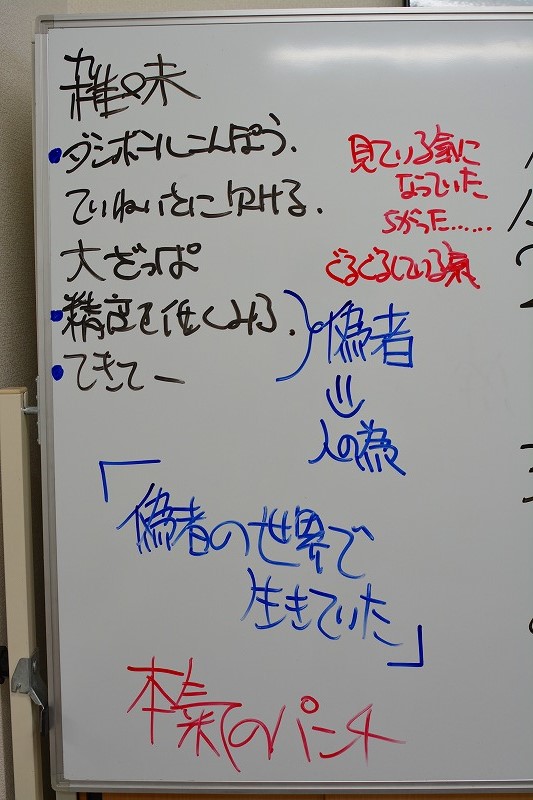 雑味
・ダンボールこんぽう.
ていねいさに欠ける.
大ざっぱ
・精度を低くみる.
・てきてー
見ている氣に
なっていた
ちがった……
ぐるぐるしている氣
偽者
人の為
「偽者の世界で
生きていた」
本氣のパンチ